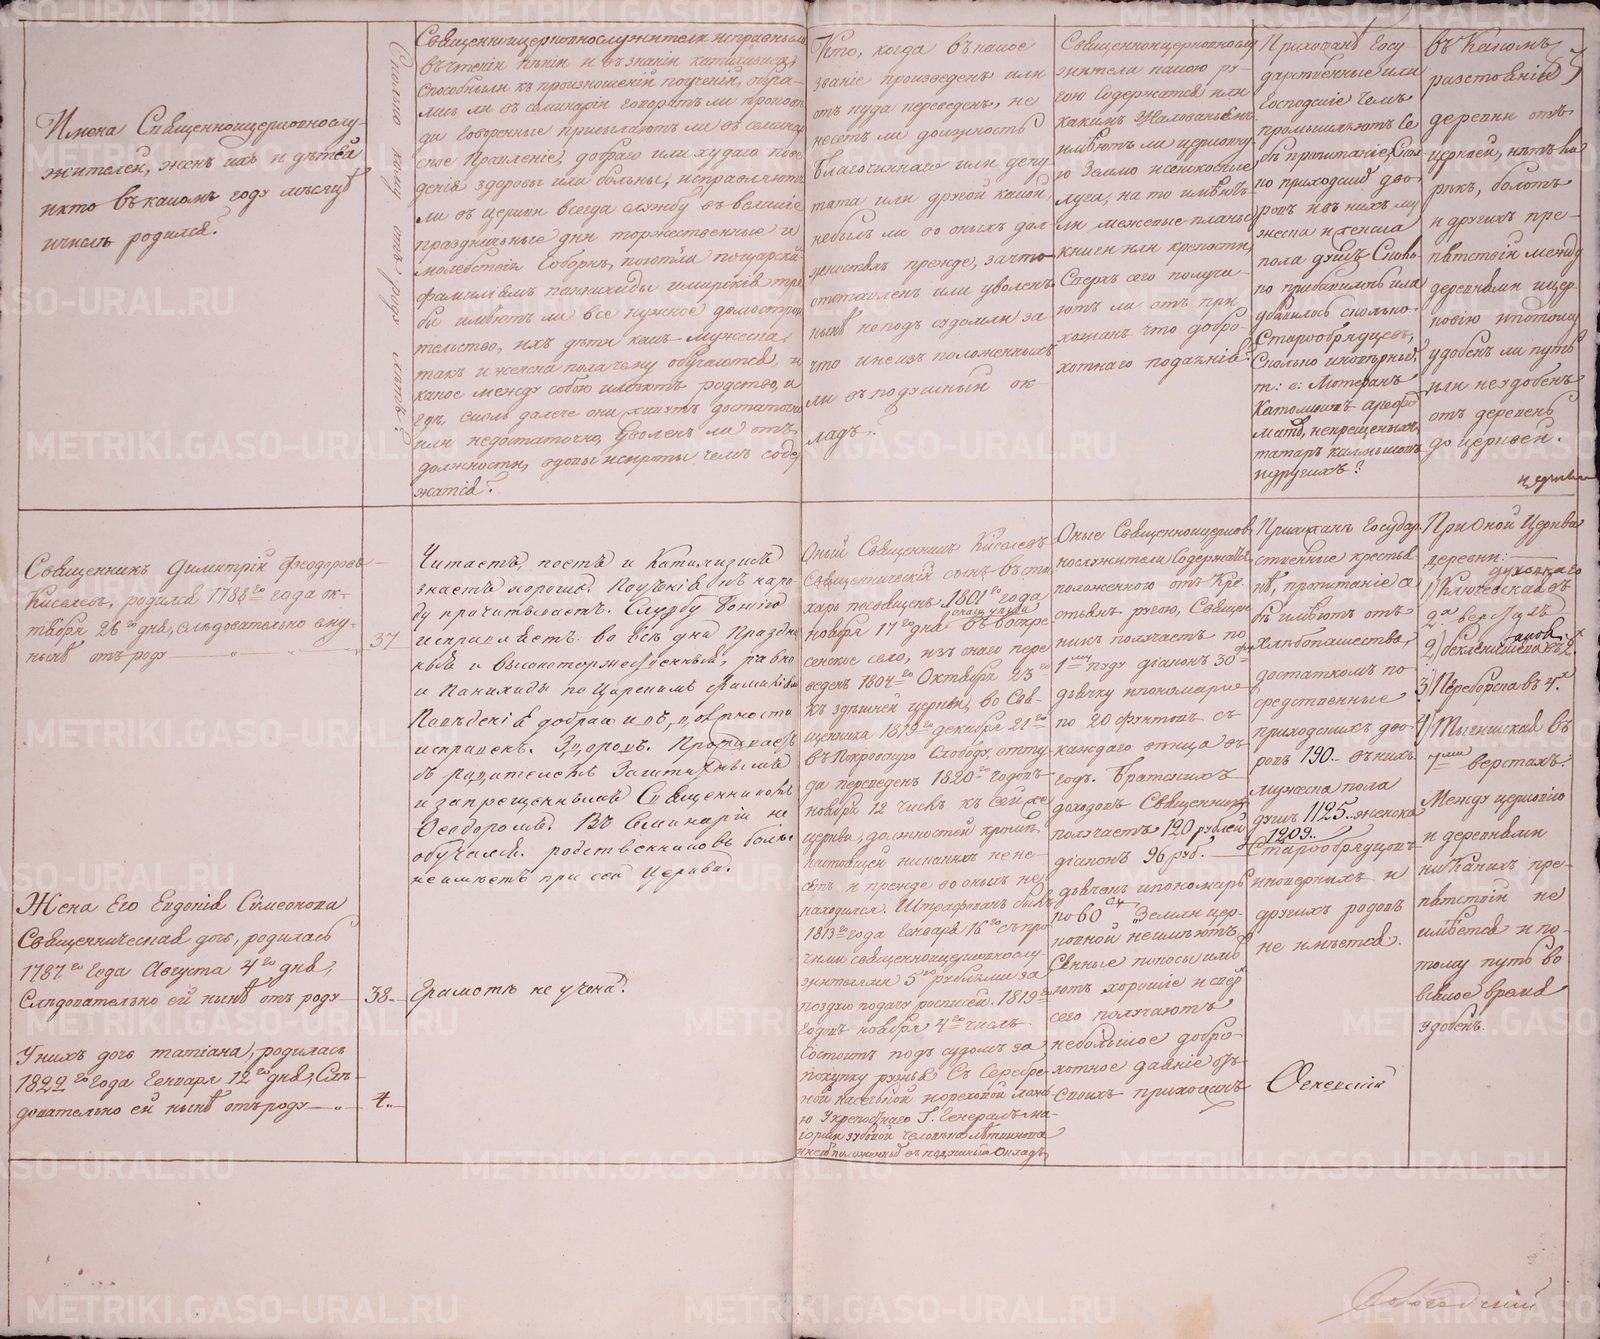 Имена Священноцерковнослу-
жителей, женъ ихъ и дѣтей
и кто въ какомъ году мѣсяцѣ
и числѣ родился?
Сколько кому отъ роду лѣтъ?
Священноцерковнослужители исправны ли
въ чтеніи пѣніи и въ знаніи катихизиса,
способны ли къ произношеній поученій, обуча-
лись ли въ семинаріи говорятъ ли проповѣ-
ди говоренные присылаютъ ли въ семинар-
ское Правленіе, добраго или худаго пове-
денія здоровы или больны, исправляютъ
ли въ церкви всегда службу въ великіе
праздничные дни торжественные и
молебствія соборнѣ, по
фамиліямъ панихиды
бы имѣютъ ли все нужное домострои-
тельство, ихъ дѣти какъ мужеска,
такъ и женска пола чему обучаются, и
какое между собою имѣютъ родство, и
гдѣ, сколь далече они живутъ достаточно
или недостаточно, уволенъ ли отъ
должности, вдовы и сироты чемъ содер-
жатся?
Кто, когда въ какое
званіе произведенъ или
отъ куда переведенъ, не
несетъ ли должность
Благочиннаго или депу-
тата или другой какой
небылъ ли во оныхъ дол-
жностяхъ прежде, за что
отставленъ или уволенъ
нынѣ не подъ судомъ ли за
что и не изъ положенныхъ
ли въ подушный ок-
ладъ?
Священноцерковнослу
жители какою ру-
гою содержатся или
какимъ жалованьемъ
имѣютъ ли церковну-
ю землю и сенокосные
луга, на то имѣютъ
ли межевые планы
книги или крепости,
Сверхъ сего получа-
ютъ ли отъ при-
хожанъ что добро-
хотнаго подаянія?
Прихожанѣ Госу-
дарственные или
Господскіе чемъ
промышляютъ се-
бѣ пропитаніе, Скол-
по приходски дво-
ровъ и въ нихъ му
жеска и женска
пола душъ Сколь
по прибавилось или
убавилось сколько
Старообрядцевъ,
Сколько иновѣрныхъ,
т: е: Лютеранъ
Католиковъ
матъ, некрещенныхъ
татаръ калмыковъ
и другихъ?
въ Какомъ
разстояніи
деревни отъ
церквей, нѣтъ ли
рѣкъ, болотъ
и другихъ пре-
пятствій между
деревнями и цер-
ковію и потому
удобенъ ли путь
или неудобенъ
отъ деревень
до церквей.
Священникъ Димитрій Феодоровъ
Киселев, родился 1788го года ок-
тября 26го дня, слѣдовательно ему
нынѣ отъ роду
37
Читаетъ, поетъ и Катихизисъ
знаетъ хорошо. Поученія къ наро-
ду прочитываетъ. Службу Божію
исправляетъ во всѣ дни Праздни
ныя и высокоторжественныя, равно
и Панихиды по Царскимъ Фамиліямъ
Поведенія добраго и въ должности
исправенъ. Здоровъ.
и запрещеннымъ Священникомъ
Феодоромъ. Въ Семинаріи не
обучался. родственниковъ болѣе
не имѣетъ при сей Церкви.
Оный Священникъ Киселевъ
Священническій сынъ въ сти-
харь посвященъ 1801го года
ноября 17го дня въ воскре
сенское село, изъ онаго пере
веденъ 1804го Октября 23го
къ здѣшней церкви, во Свя-
щенника 1819го декабря 21го
въ Покровскую Слободу, отту
да переведенъ 1820го годовъ
ноября 12 числъ къ сей же
церкви, должностей кромѣ
настоящей никакихъ не не-
сетъ и прежде во оныхъ не
находился. Штрафованъ былъ
1813го года генваря 16го съ про
чими священноцерковнослу-
жителями 5ю рублями за
поздую подачу росписей. 1819го
годовъ ноября 4го числъ
Состоитъ подъ судомъ за
покупку ружья съ Серебре-
ной насечкой
Г. Генералъ-ма-
и не въ положенный въ подушный Окладъ
Оные Священноцерков
нослужители содержатся
положенною отъ Кре-
стьянъ ругою, Священ
никъ получаетъ по
1му пуду діаконъ 30 фун
дьячку и пономарю
по 20 фунтовъ съ
каждаго вѣнца въ
годъ. Братскихъ
доходовъ Священникъ
получаетъ 120 рублей
діаконъ 96 руб.
дьячекъ и пономарь
по 60 Земли цер-
ковной неимѣютъ
Сенные покосы имѣ
ютъ хорошіе и сверхъ
сего получаютъ
небольшое добро-
хотное даяніе отъ
своихъ прихожанъ
Прихожанѣ Государ
ственные крестья
нѣ, пропитаніе се
бѣ имѣютъ отъ
Хлѣбопашества,
достаткомъ по-
средственные
приходскихъ дво-
ровъ 190. въ нихъ
мужеска пола
душъ 1125. женска
1209.
Старообрядцовъ
иноверныхъ и
другихъ родовъ
не имѣется.
При Оной Церкви
деревни:
1) Ключевская въ
2хъ верстахъ
2) Бекленищева въ 2хъ
3) Переборска въ 4хъ
4) Тыгишская въ
7ми верстахъ.
Между церковію
и деревнями
ни Какихъ пре-
пятствій не
имѣется и по-
тому путь во
всякое время
удобенъ.
Жена Его Евдокія Симеонова
Священническая дочь, родилась
1787го года Августа 4го дня,
Слѣдовательно ей нынѣ отъ роду
38.
Грамотѣ не учена.
У нихъ дочь татіана, родилась
1822го года Генваря 12го дня, Слѣ-
довательно ей нынѣ отъ роду
4.
METRIKI.GASO-URAL.RU